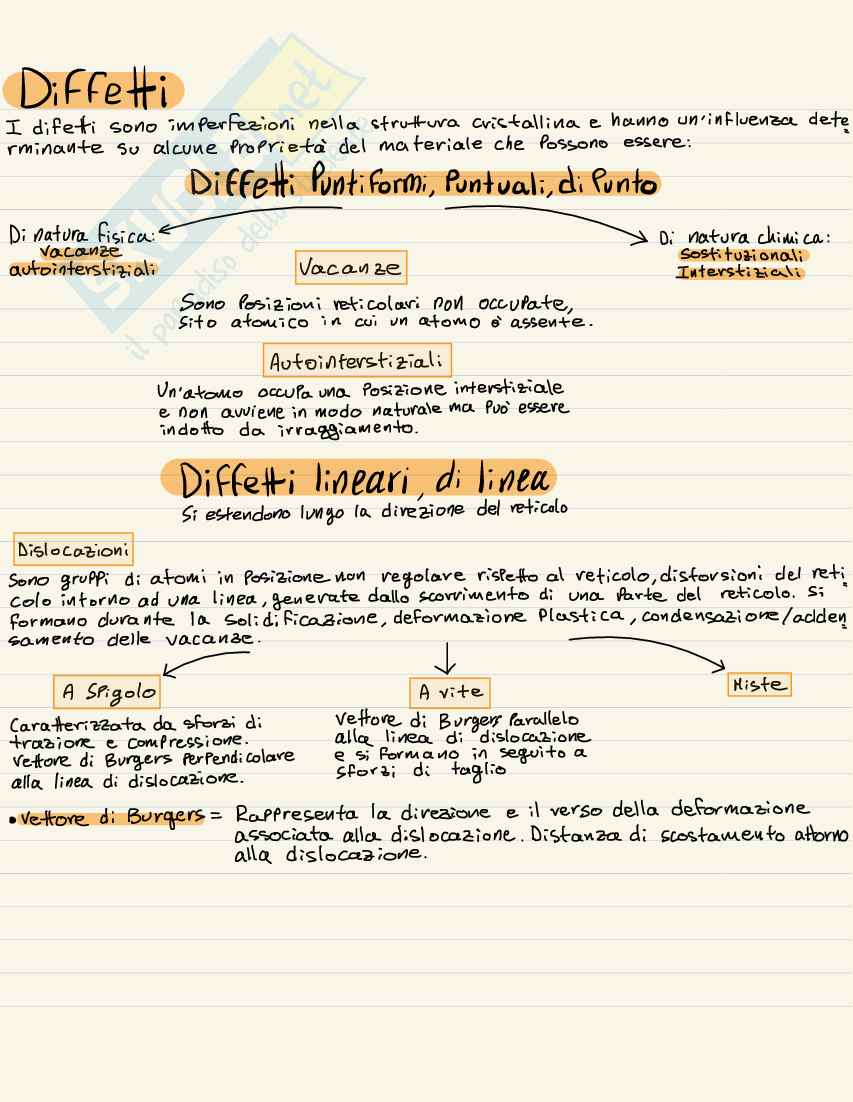 Diffetti
I difetti sono imperfezioni nella struttura cristallina e hanno un'influenza dete
rminante su alcune proprietà del materiale che possono essere:
Diffetti Puntiformi, Puntuali, di Punto
Di natura fisica:
vacanze
autointerstiziali
Di natura chimica:
Sostituzionali
Interstiziali
Vacanze
Sono posizioni reticolari non occupate,
sito atomico in cui un atomo è assente.
Autointerstiziali
Un'atomo occupa una posizione interstiziale
e non avviene in modo naturale ma può essere
indotto da irraggiamento.
Diffetti lineari, di linea
Si estendono lungo la direzione del reticolo
Dislocazioni
Sono gruppi di atomi in posizione non regolare rispetto al reticolo, distorsioni del reti
colo intorno ad una linea, generate dallo scorrimento di una parte del reticolo. Si
formano durante la solidificazione, deformazione plastica, condensazione/adden
samento delle vacanze.
A Spigolo
A vite
Miste
Caratterizzata da sforzi di
trazione e compressione.
Vettore di Burgers perpendicolare
alla linea di dislocazione.
Vettore di Burgers parallelo
alla linea di dislocazione
e si formano in seguito a
sforzi di taglio
• Vettore di Burgers = Rappresenta la direzione e il verso della deformazione
associata alla dislocazione. Distanza di scostamento attorno
alla dislocazione.